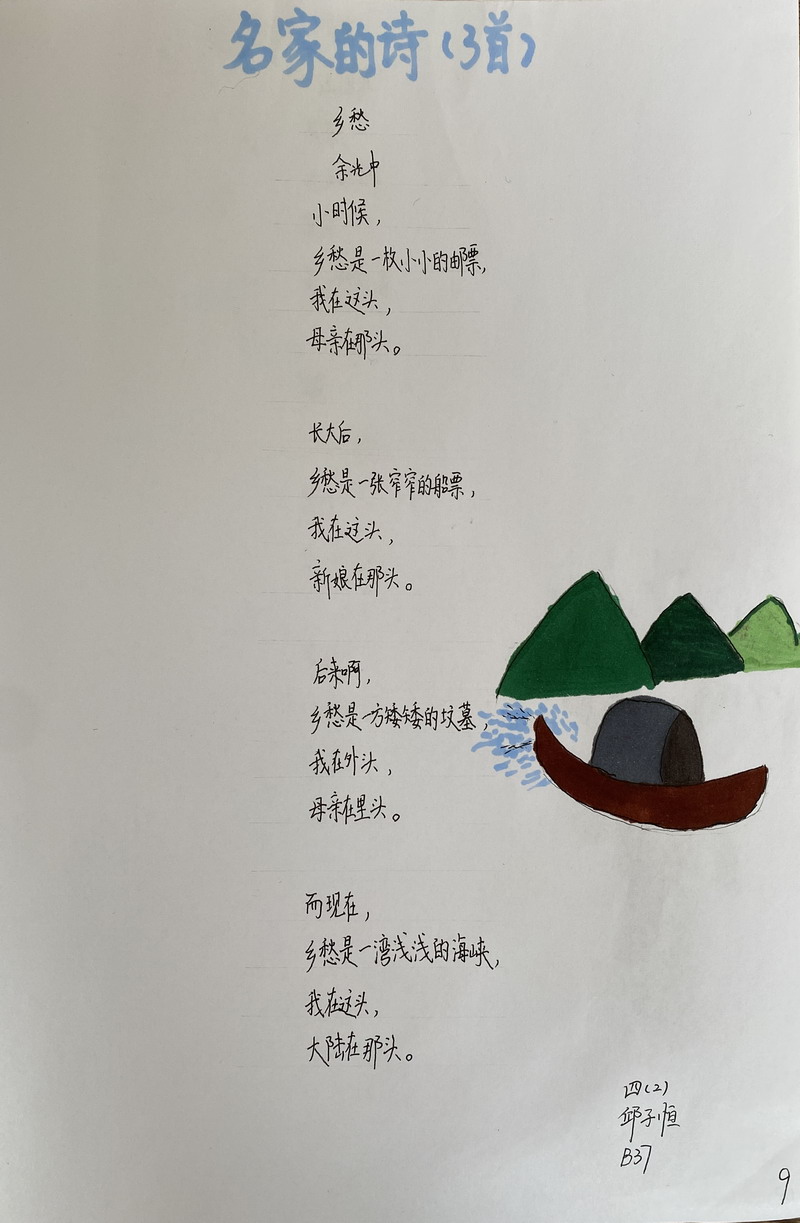 名家的诗(3首)
乡愁
余光中
小时候,
乡愁是一枚小小的邮票,
我在这头,
母亲在那头。
长大后,
乡愁是一张窄窄的船票,
我在这头,
新娘在那头。
后来啊,
乡愁是一方矮矮的坟墓,
我在外头,
母亲在里头。
而现在,
乡愁是一湾浅浅的海峡,
我在这头,
大陆在那头。
四(2)
邱子恒
B37
9